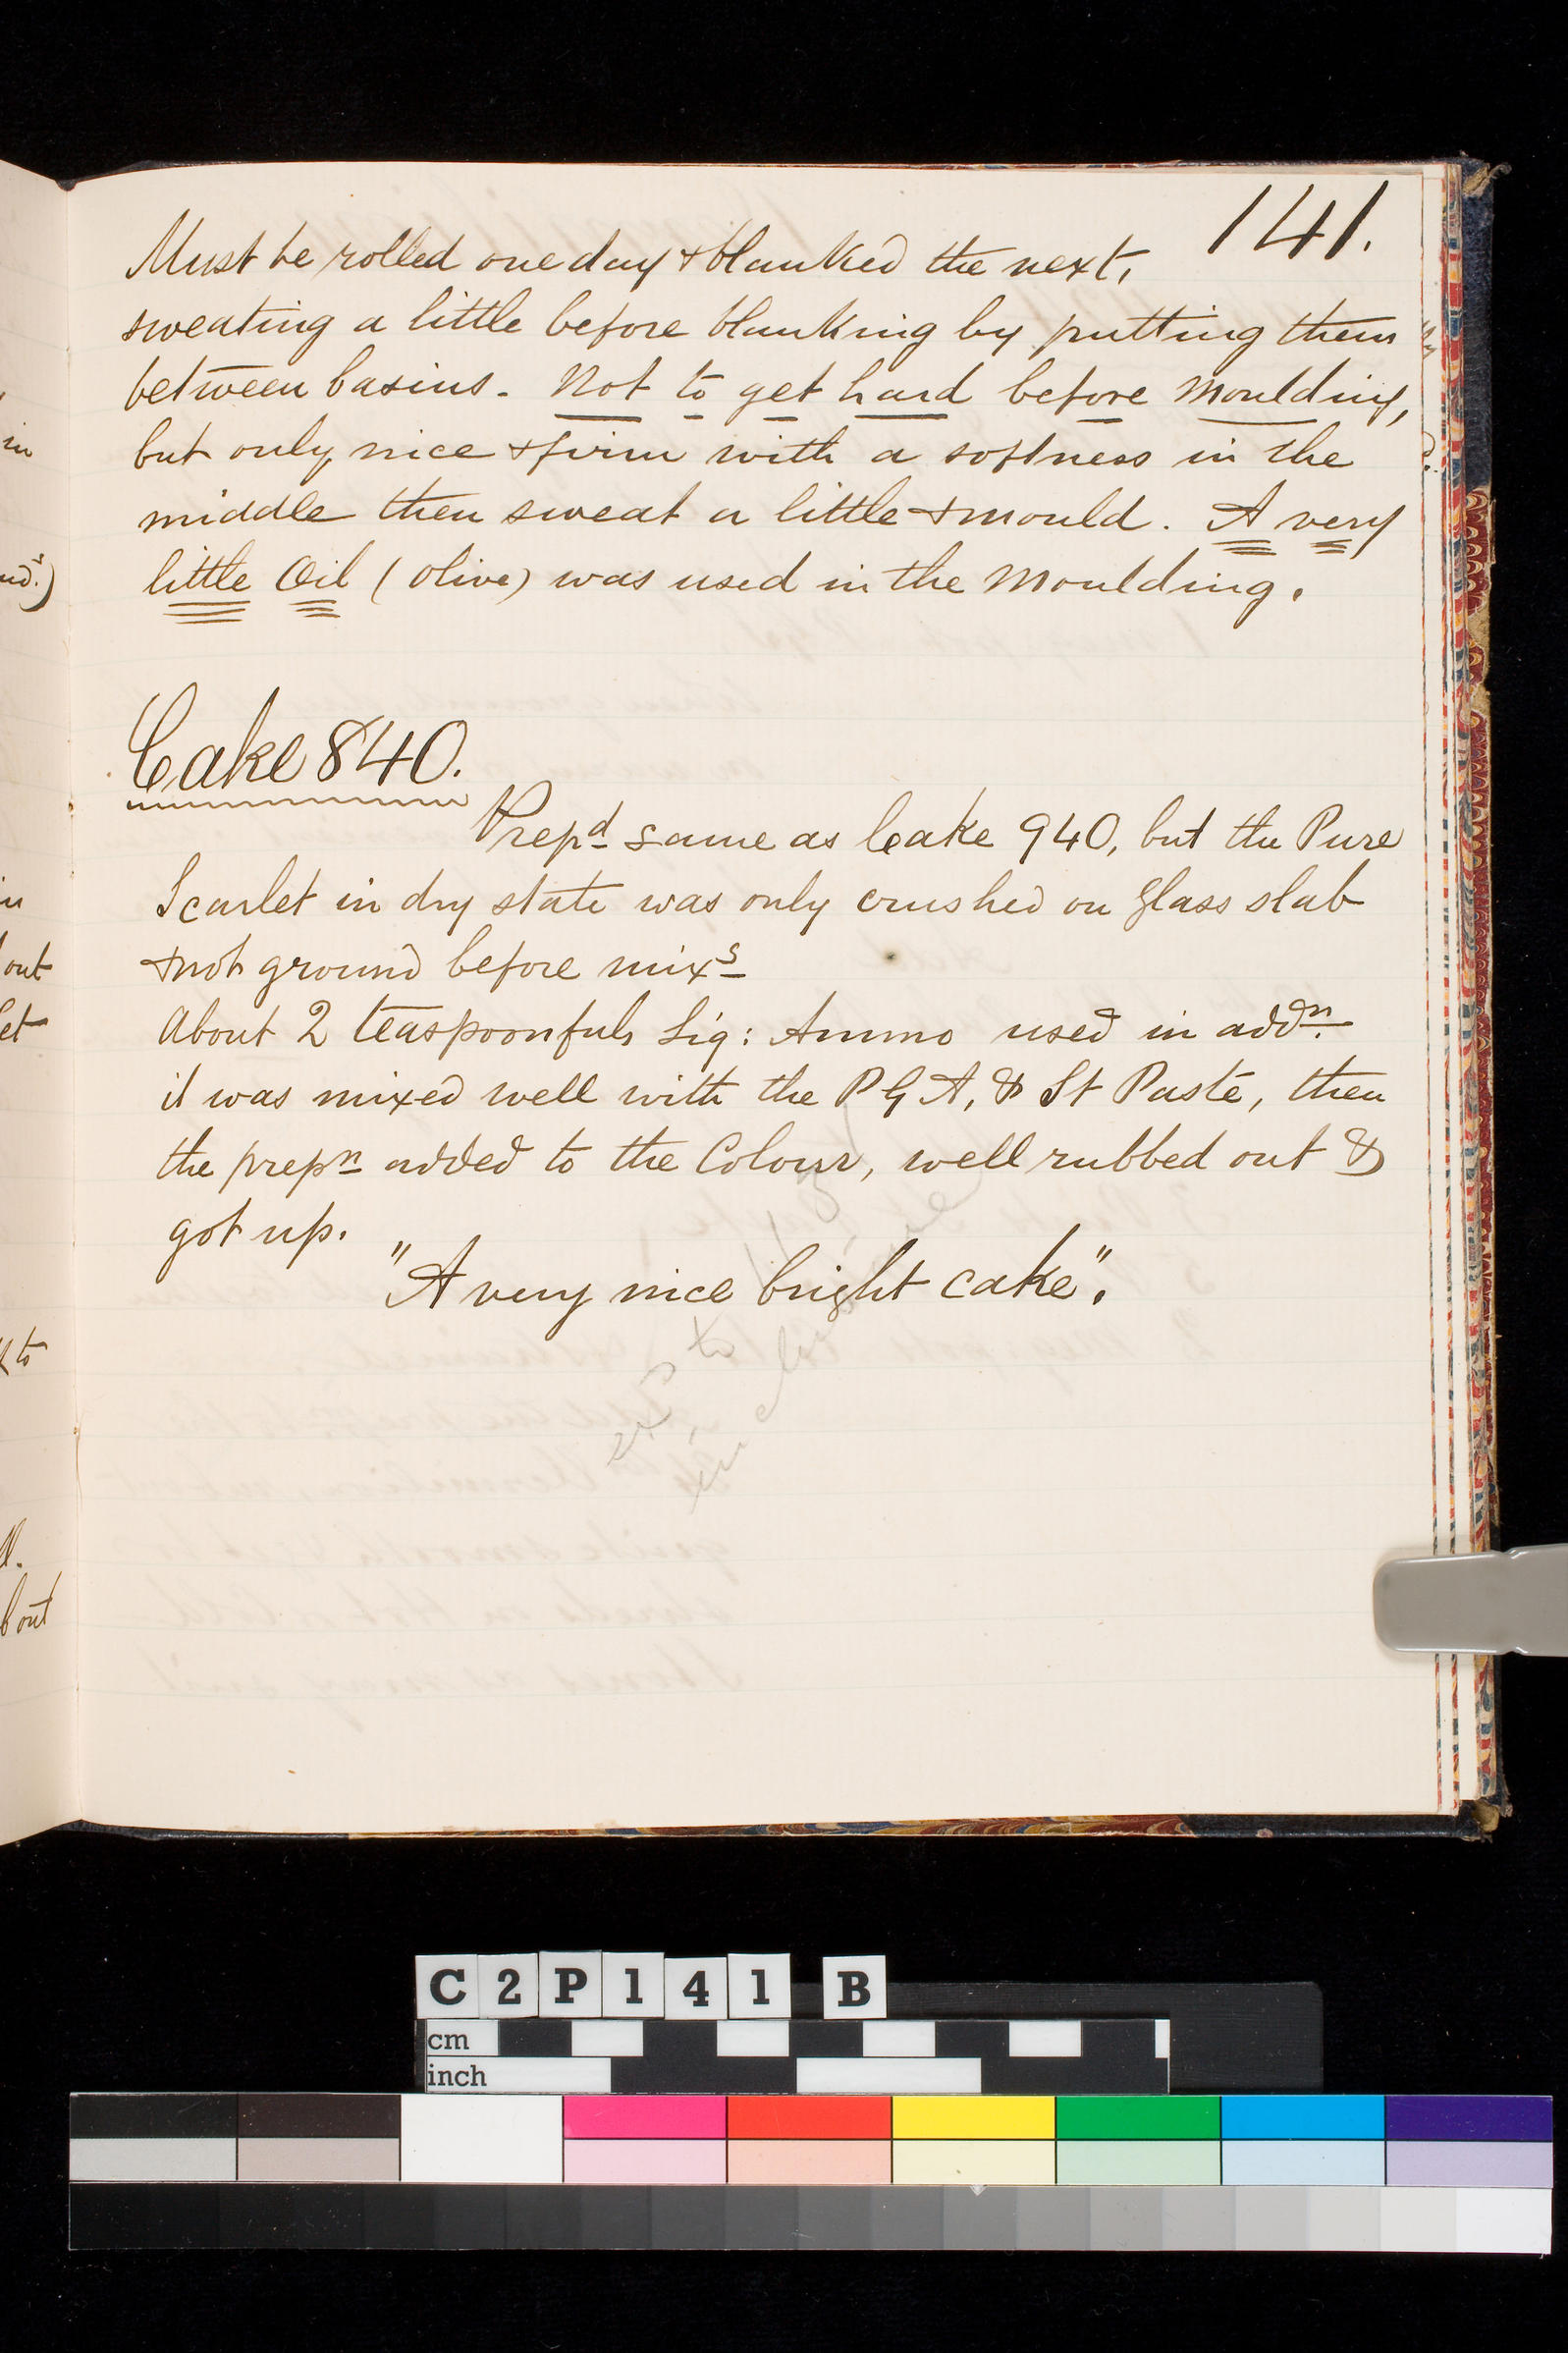 141.
Must be rolled one day & blanked the next,
sweating a little before blanking by putting them
between basins. Not to get hard before moulding,
but only nice & firm with a softness in the
middle then sweat a little & mould. A very
little Oil (Olive) was used in the moulding.
Cake 840.
Prepd same as Cake 940, but the Pure
Scarlet in dry state was only crushed on glass slab
& not ground before mixg
About 2 teaspoonfuls Liq: Ammo used in addn.
it was mixed well with the P G A, & St Paste, then
the prepn added to the Colour, well rubbed out &
got up.
"A very nice bright cake".
in
out
et
to
bout
C2P141 B
cm
inch